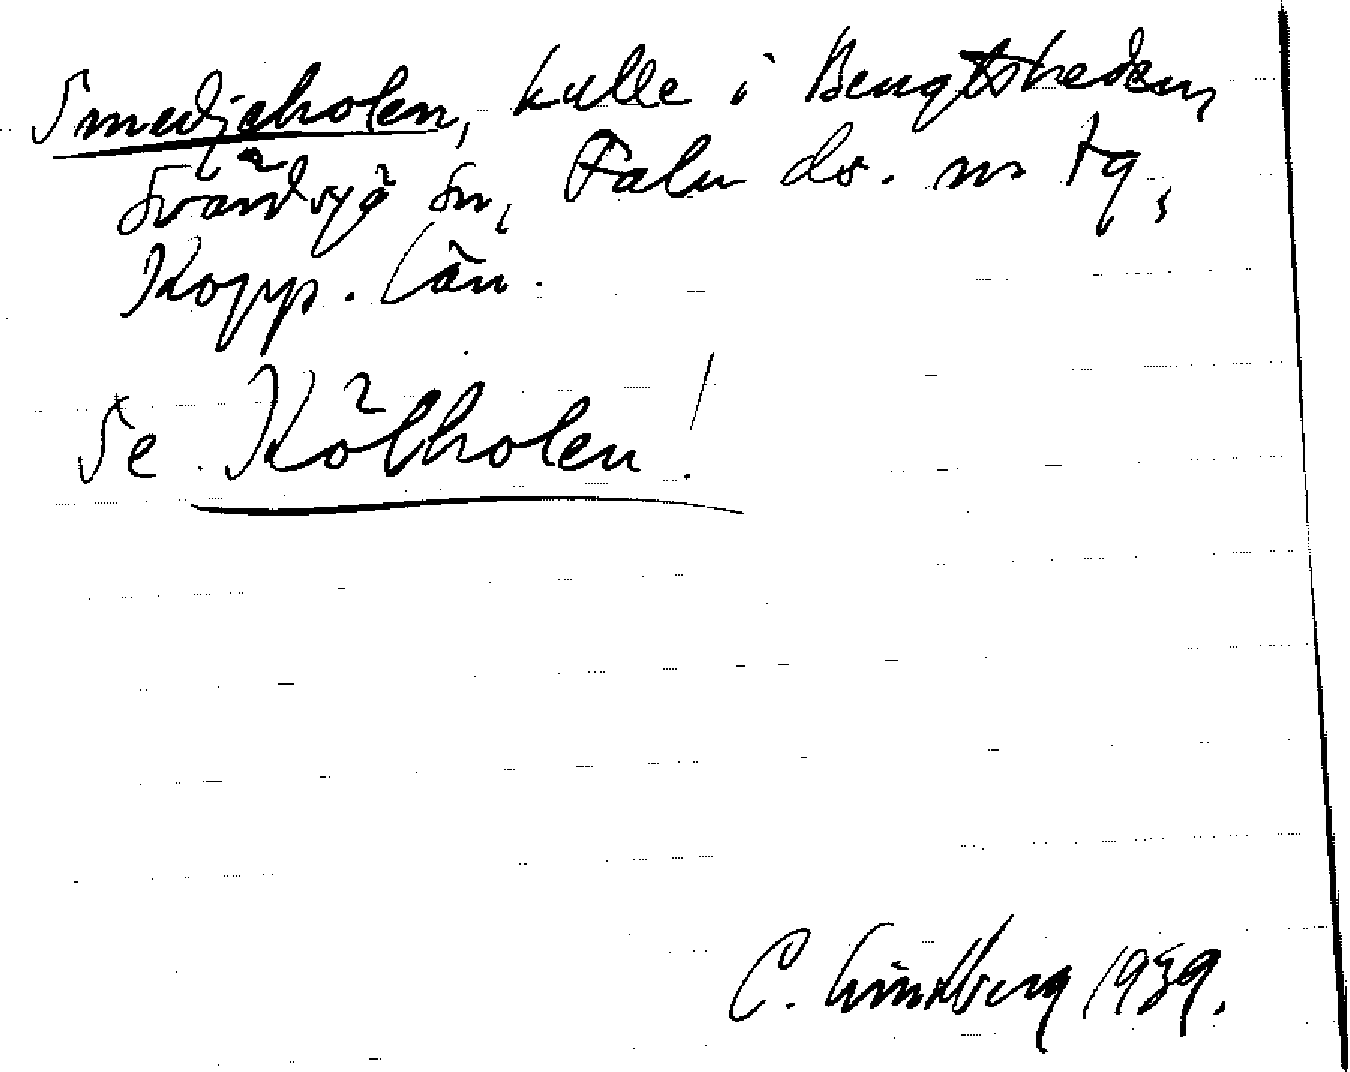 Smedjeholen, kulle i Bengtsheden,
Svärdsjö sn, Falu ds. n tg,
Kopp. län.
Se Kölholen!
C. Lindberg 1939.